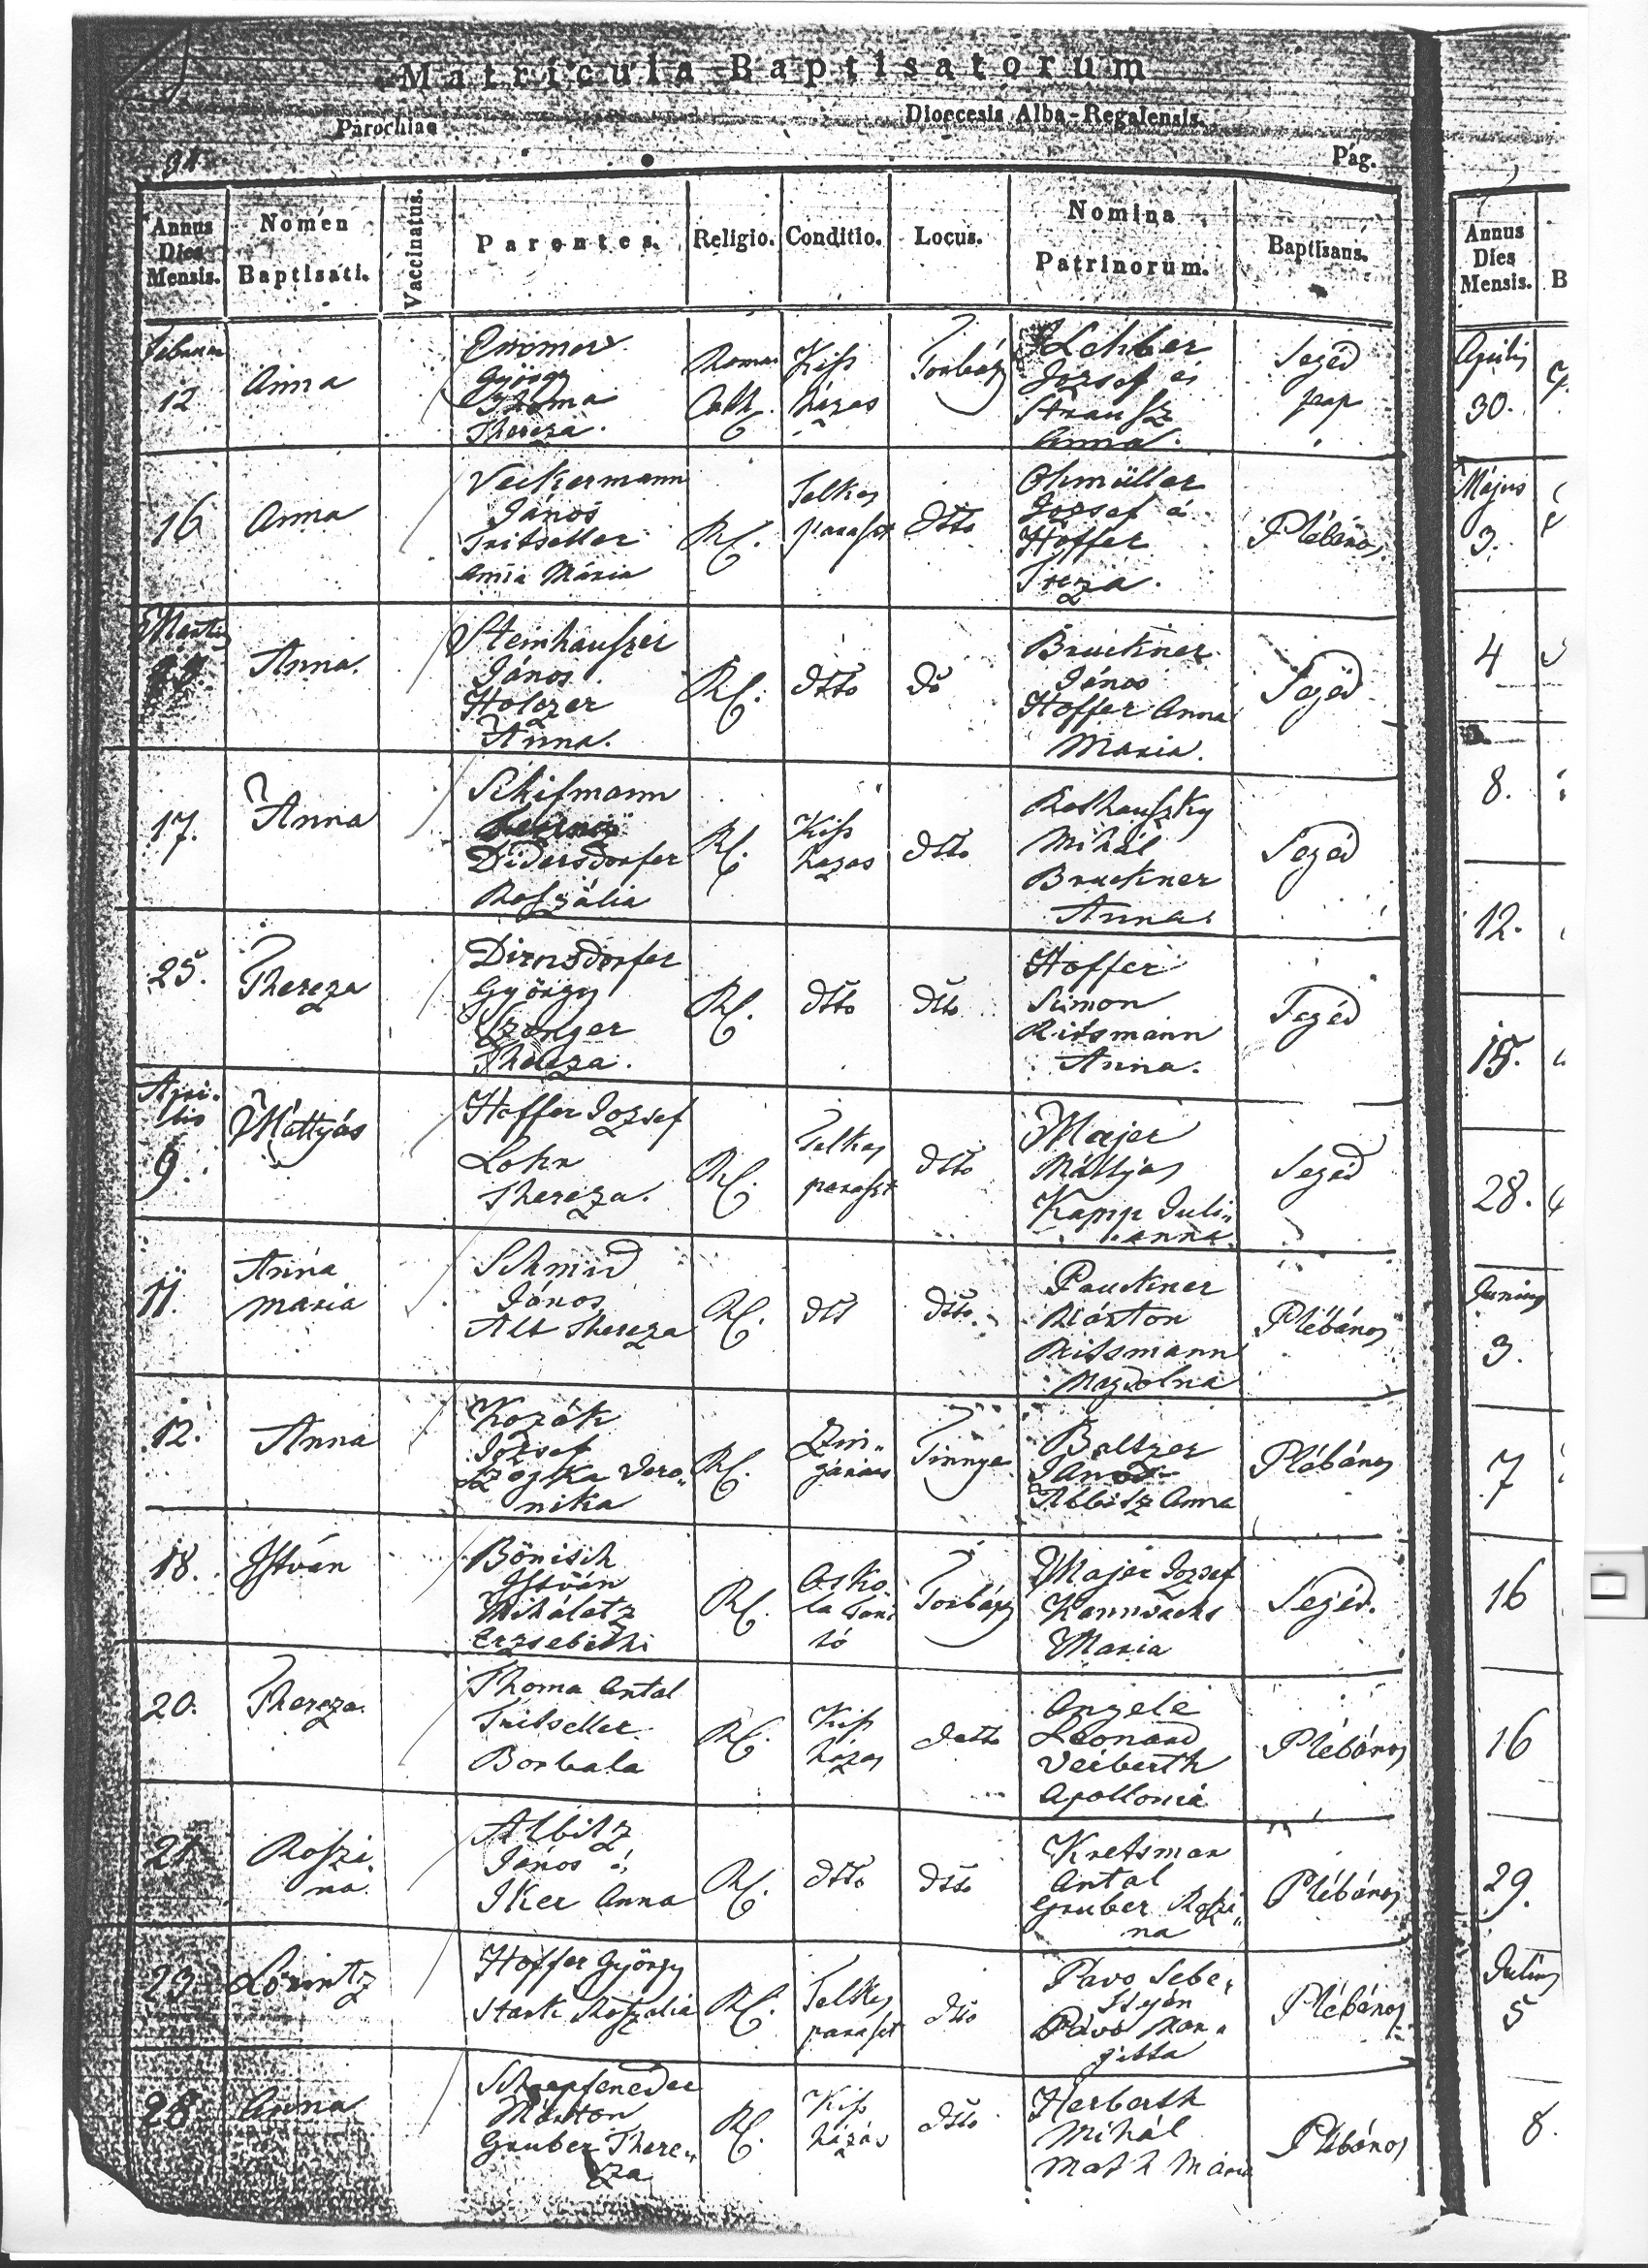 Matricula Baptisatorum
Parochiae
Dioecesis Alba-Regalensis.
Pág.
Annus Dies Mensis.
Nomen Baptisati.
Vaccinatus.
Parentes.
Religio.
Conditio.
Locus.
Nomina Patrinorum.
Baptisans.
Annus Dies Mensis.
B
12
Anna
György
Thoma
Thereza.
Roma
Cath.
Kiss
házas
Torbágy
Lehber
József és
Strausz
Anna.
Segéd
pap
16
Anna
Veikermann
János
Tritseller
Anna Mária
RC.
Telkes
paraszt
dtto
Ohmüller
József és
Hoffer
Treza.
Plébános
Anna.
Steinhauszer
János
Holczer
Anna.
RC.
dtto
do
Bruckner
János
Hoffer Anna
Maria.
Segéd
17.
Anna
Schifmann
Didersdorfer
Roszália
RC.
Kiss
hazas
dtto
Rothauszky
Mihál
Bruckner
Anna
Segéd
25.
Thereza
Dirnsdorfer
György
Thereza.
RC.
dtto
dtto
Hoffer
Simon
Ritsmann
Anna.
Segéd
Apri-
lis
9.
Máttyás
Hoffer Jozsef
Lohr
Thereza.
RC.
Telkes
paraszt
dtto
Majer
Máttyás
Kapp Juli-
anna
Segéd
11.
Anna
maria
Schmid
János
Alt Thereza
RC.
dtt
dtto.
Pauckner
Márton
Ritsmann
Magdolna
Plébános
12.
Anna
Kozák
József
Vero-
nika
RC.
Tinnye
Baltzer
János
Albitz Anna
Plébános
18.
István
Bönisch
István
Miháletz
Erzsebeth
RC.
Osko-
la tani-
tó
Torbágy
Majer Jozsef
Maria
Segéd.
20.
Thereza.
Thoma Antal
Tritseller
Borbala
RC.
Kiss
házas
detto
Angele
Leonard
Veiberth
Apollonia
Plébános
21.
Roszi-
na.
Albitz
János és
Iker Anna
RC.
dtto
dtto
Kretsmar
Antal
Gruber Roszi-
na
Plébános
23.
Lőrintz
Hoffer György
Stark Roszalia
RC.
Telkes
paraszt
dtto
Pavo Sebe-
styén
Pavo Mar-
gitta
Plébános
28.
Anna
Márton
Gruber There-
za
RC.
Kiss
házás
dtto
Herberth
Mihál
Math Mária
Plébános
Aprilis
30.
Május
3.
4
8.
12.
15.
28.
Junius
3.
7
16
16
29.
Julius
5
8.